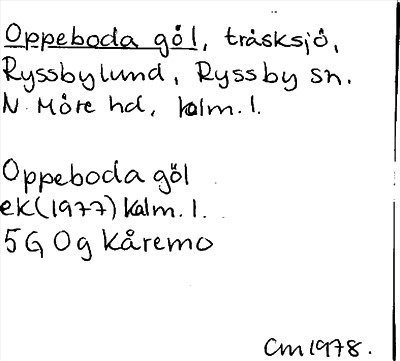 Oppeboda göl, träsksjö,
Ryssbylund, Ryssby sn.
N. Möre hd, kalm. l.
Oppeboda göl
ek (1977) kalm. l.
5G 0g Kåremo
CM 1978.